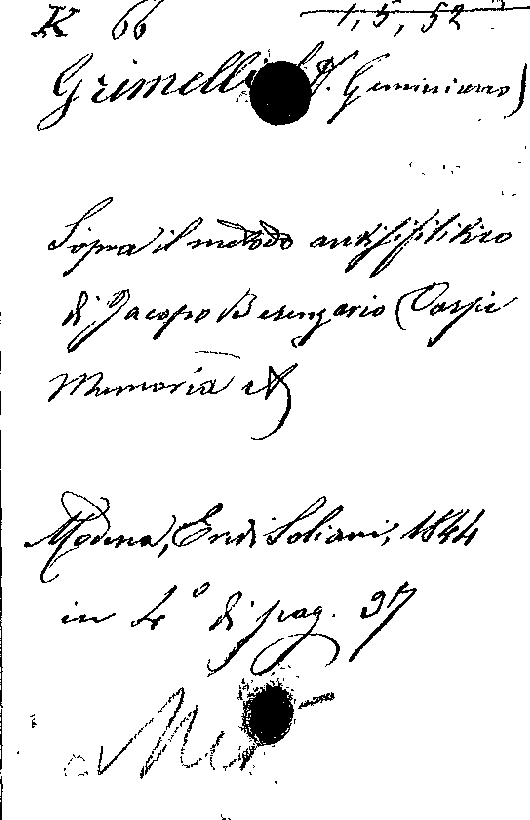 K 66 1, 5, 52
Grimelli Geminiano)
Sopra il metodo antisifilitico
di Jacopo Berengario Carpi
Memoria
Modena, Eredi Soliani, 1844
in 4° di pag. 97